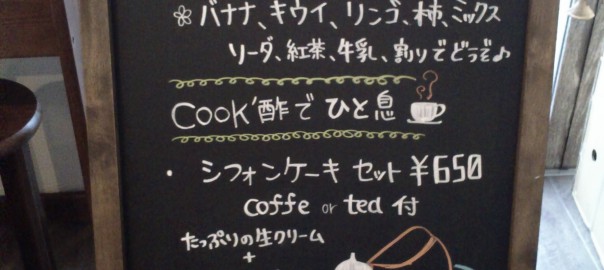 ❀ バナナ、キウイ、リンゴ、柿、ミックス
ソーダ、紅茶、牛乳、割りでどうぞ♪
Cook酢で ひと息
・ シフォンケーキ セット ¥650
coffe or tea 付
たっぷりの生クリーム
+